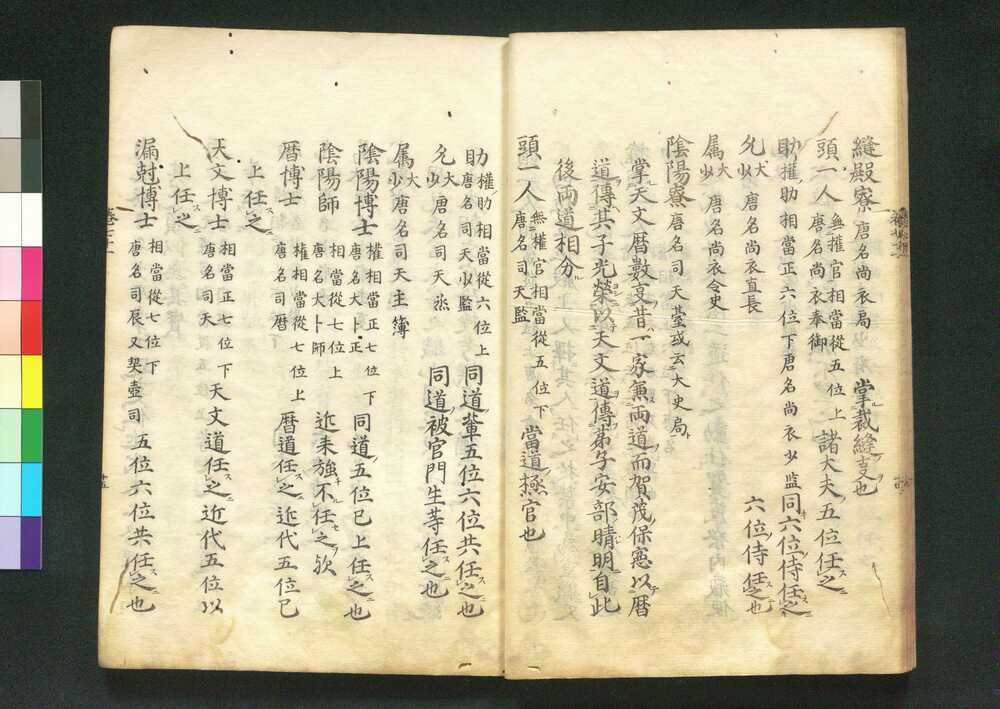 縫殿寮 唐名尚衣局 掌裁縫亊也
頭一人 無權官相當從五位上 唐名尚衣奉御 諸大夫五位任之
助 權助相當正六位下唐名尚衣少監 同六位侍任之
允 大 少 唐名尚衣直長 六位侍任之也
属 大 少 唐名尚衣令史
陰陽寮 唐名司天臺或云大史局
掌天文暦數亊昔一家兼両道而賀茂保憲以暦
道傳其子光榮以天文道傳弟子安部晴明自此
後両道相分
頭一人 無權官相當從五位下 唐名司天監 當道極官也
助 權助相當從六位上 唐名司天少監 同道輩五位六位共任之也
允 大 少 唐名司天丞 同道被官門生等任之也
属 大 少 唐名司天主簿
陰陽博士 權相當正七位下 唐名大卜正 同道五位已上任之也
陰陽師 相當從七位上 唐名大卜師 近来強不任之欤
暦博士 權相當從七位上 唐名司暦 暦道任之近代五位已
上任之
天文博士 相當正七位下 唐名司天 天文道任之近代五位以
上任之
漏尅博士 相當從七位下 唐名司辰又挈壺司 五位六位共任之也